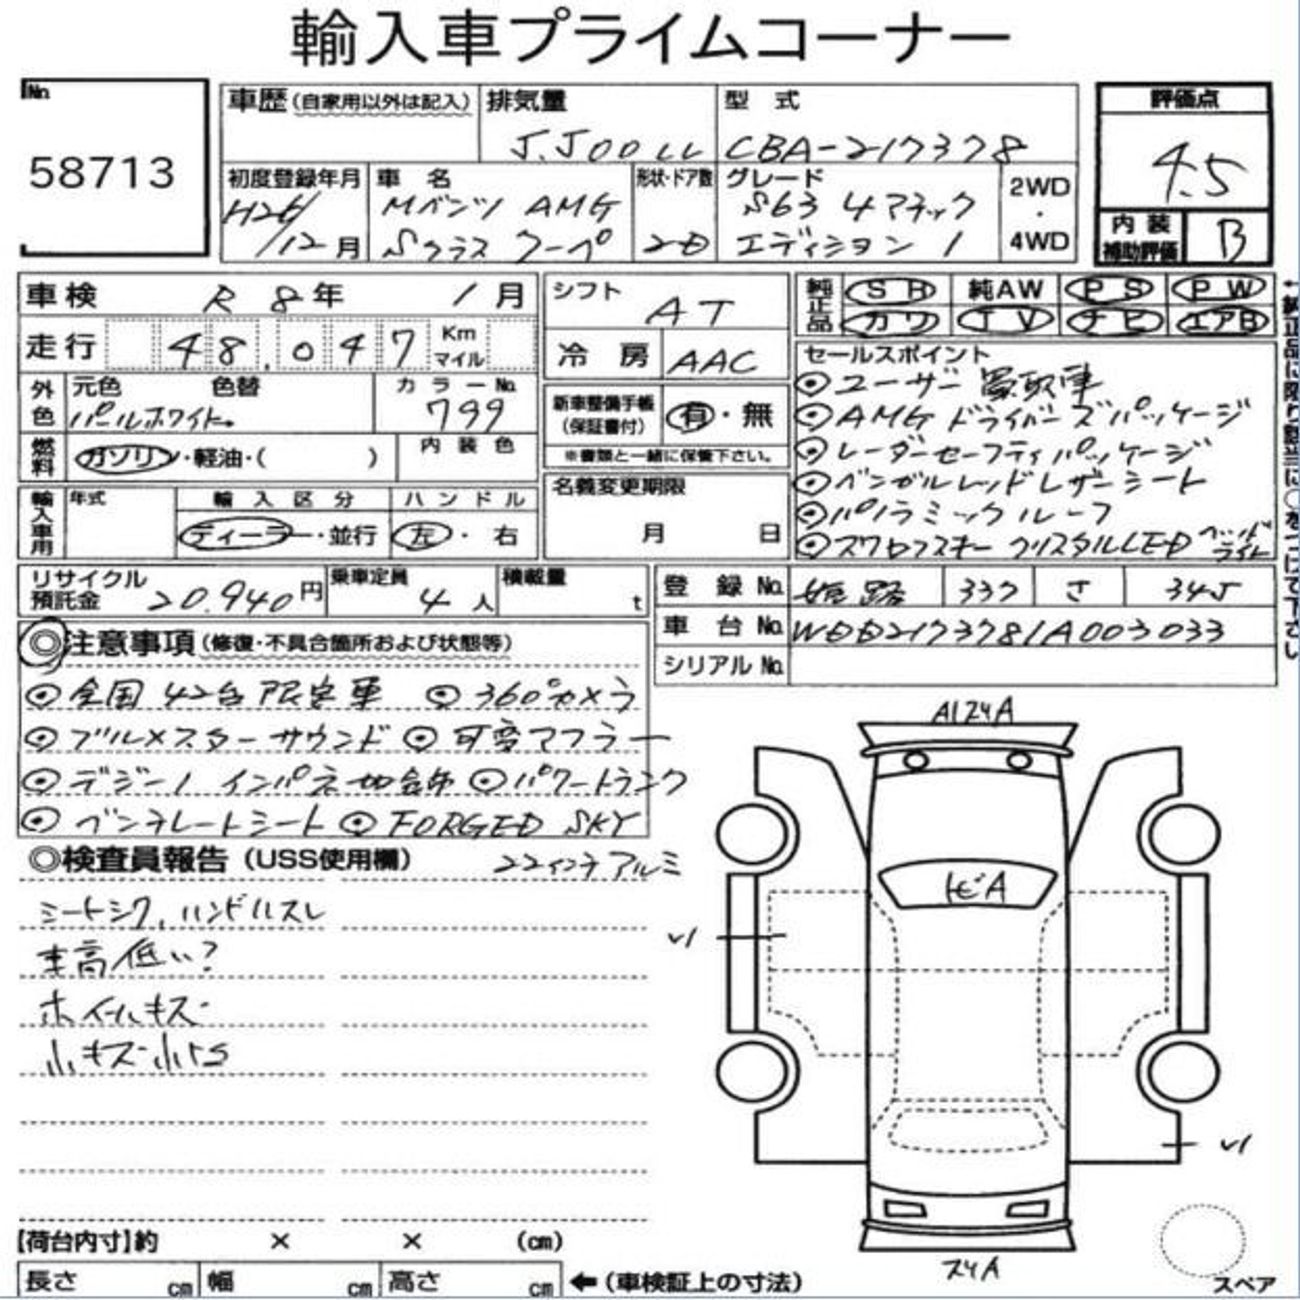 輸入車プライムコーナー
No.
58713
車歴(自家用以外は記入)
排気量
5.500cc
型式
CBA-217378
評価点
4.5
初度登録年月
H26/12月
車名
Mベンツ AMG
Sクラス クーペ
形状・ドア数
2D
グレード
S63 4マチック
エディション1
2WD
・
4WD
内装
補助評価
B
車検
R 8年 1月
シフト
AT
純正品
SR
純AW
PS
PW
カワ
TV
ナビ
エアB
走行
48,047
Km
マイル
冷房
AAC
セールスポイント
◎ユーザー買取車
◎AMGドライバーズパッケージ
◎レーダーセーフティパッケージ
◎ベンガルレッドレザーシート
◎パノラミックルーフ
◎スワロフスキー クリスタルLED ヘッドライト
外色
元色
色替
パールホワイト
カラーNo.
799
新車整備手帳
(保証書付)
有・無
※書類と一緒に保管下さい。
燃料
ガソリン・軽油・( )
内装色
輸入車用
年式
輸入区分
ディーラー・並行
ハンドル
左・右
名義変更期限
月 日
←純正品に限り該当に○をつけて下さい
リサイクル
預託金
20,940円
乗車定員
4人
積載量
t
登録No.
姫路
337
さ
345
車台No.
WDD2173781A003033
シリアルNo.
◎注意事項(修復・不具合箇所および状態等)
◎全国42台限定車 ◎360°カメラ
◎ブルメスターサウンド ◎可変マフラー
◎デジーノ インパネ地合飾 ◎パワートランク
◎ベンチレートシート ◎FORGED SKY
22インチアルミ
◎検査員報告(USS使用欄)
シートシワ、ハンドルスレ
車高低い?
ホイールキズ
小キズ小ヘコ
A1ヌ4A
トビA
V1
V1
ヌ4A
スペア
【荷台内寸】約 × × (cm)
長さ cm
幅 cm
高さ cm
←(車検証上の寸法)